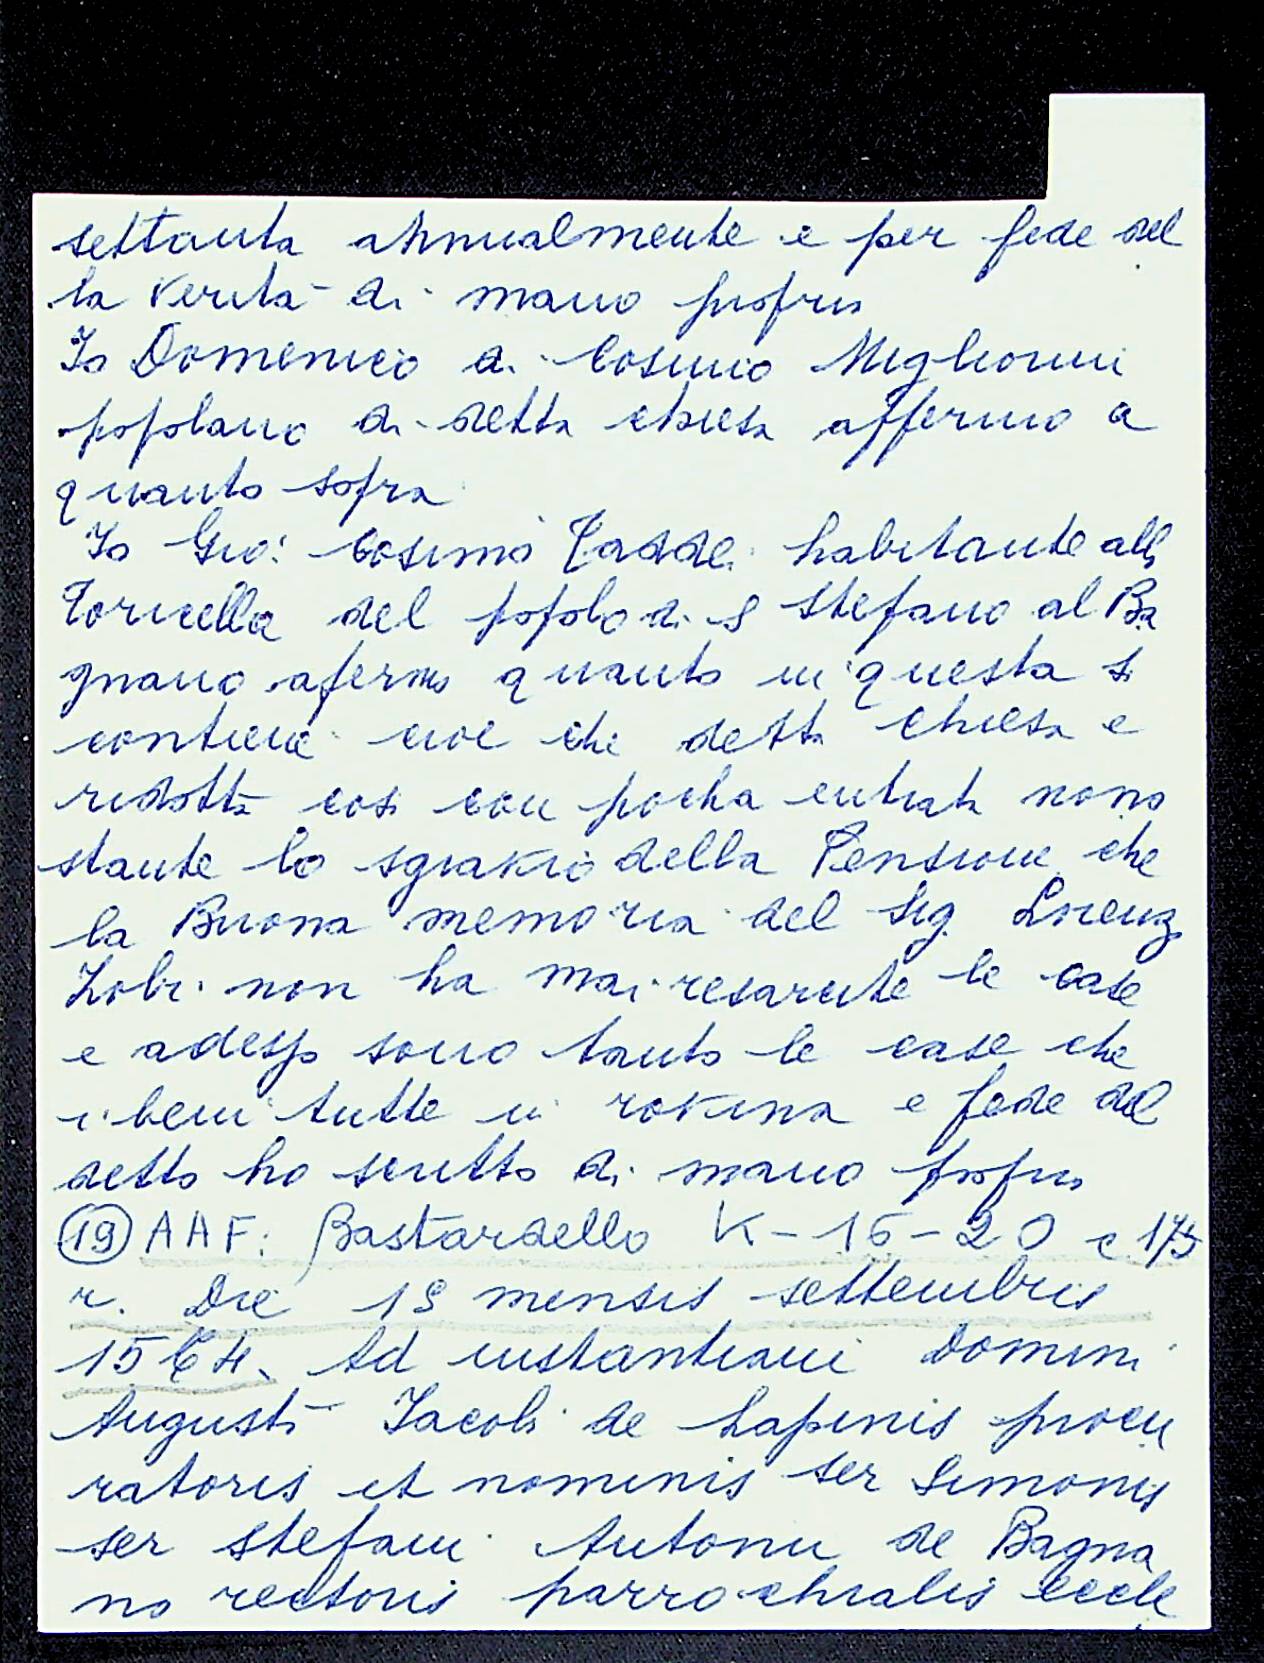 settanta annualmente e per fede del
la verità di mano propria
Io Domenico di Cosimo Migliorini
popolano di detta chiesa affermo a
quanto sopra
Io Gio: Cosimo Taddei habitante alla
Toricella del popolo di S Stefano al Ba
gnano afermo quanto in questa si
contiene cioe che detta chiesa e
ridotta cosi con pocha entrata nono
stante lo sgravio della Pensione che
la Buona memoria del Sig. Lorenzo
Zobi non ha mai resarcite le case
e adesso sono tanto le case che
i beni tutte in rovina e fede del
detto ho scritto di mano propria
(19) AAF: Bastardello K-16-20 c 175
r. Die 19 mensis settembris
1564. Ad instantiam Domini
Augusti Iacobi de Lapinis procu
ratoris et nominis ser Simonis
ser Stefani Antonii de Bagna
no rectoris parrochialis eccle